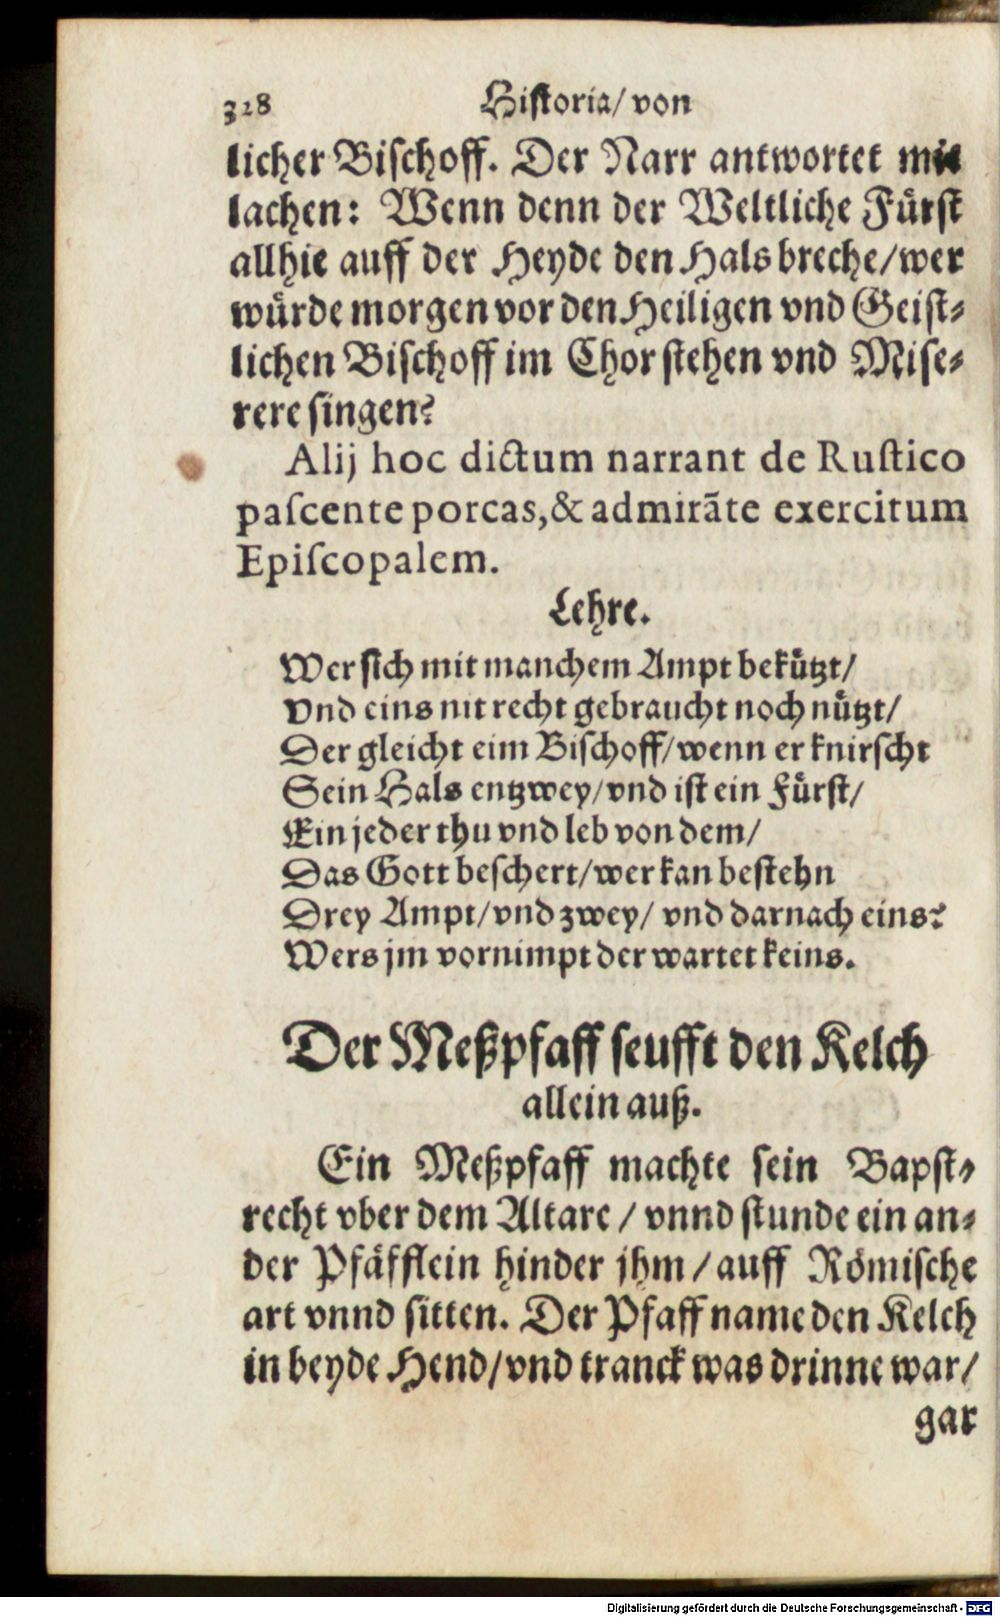 328 Historia/ von
licher Bischoff. Der Narr antwortet mit
lachen: Wenn denn der Weltliche Fürst
allhie auff der Heyde den Hals breche/wer
würde morgen vor den Heiligen vnd Geist-
lichen Bischoff im Chor stehen vnd Mise-
rere singen?
Alij hoc dictum narrant de Rustico
pascente porcas,& admirāte exercitum
Episcopalem.
Lehre.
Wer sich mit manchem Ampt bekützt/
Vnd eins nit recht gebraucht noch nützt/
Der gleicht eim Bischoff/wenn er knirscht
Sein Hals entzwey/vnd ist ein Fürst/
Ein jeder thu vnd leb von dem/
Das Gott beschert/wer kan bestehn
Drey Ampt/vnd zwey/ vnd darnach eins?
Wers jm vornimpt der wartet keins.
Der Meßpfaff seufft den Kelch
allein auß.
Ein Meßpfaff machte sein Bapst-
recht vber dem Altare / vnnd stunde ein an-
der Pfäfflein hinder jhm / auff Römische
art vnnd sitten. Der Pfaff name den Kelch
in beyde Hend/vnd tranck was drinne war/
gar
Digitalisierung gefördert durch die Deutsche Forschungsgemeinschaft - DFG